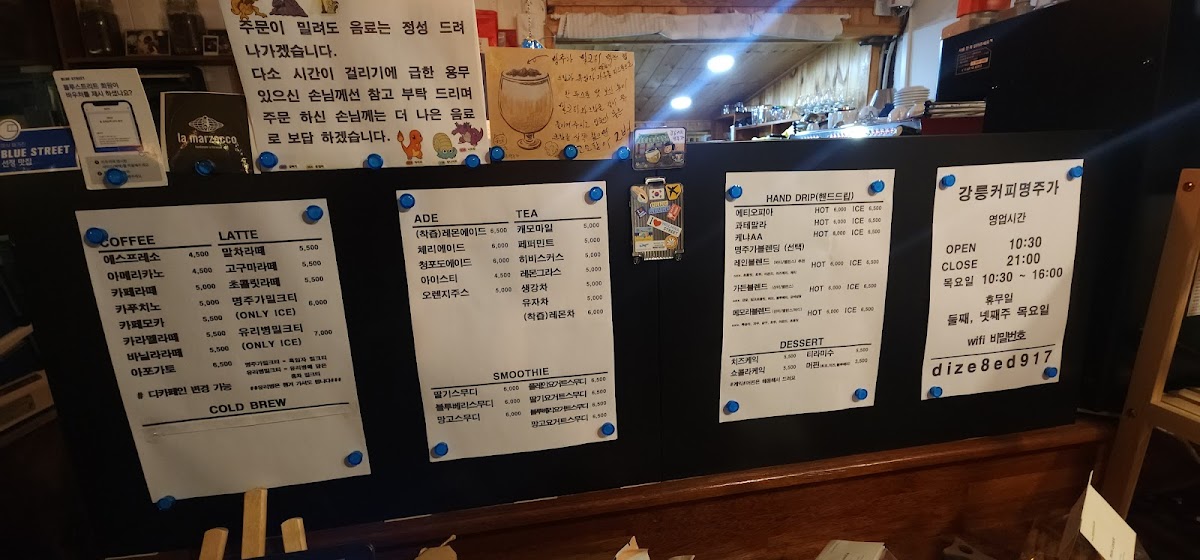 주문이 밀려도 음료는 정성 드려
나가겠습니다.
다소 시간이 걸리기에 급한 용무
있으신 손님께선 참고 부탁 드리며
주문 하신 손님께는 더 나은 음료
로 보답 하겠습니다.
BLUE STREET
BLUE STREET
선정 맛집
la marzocco
COFFEE
에스프레소 4,500
아메리카노 4,500
카페라떼 5,000
카푸치노 5,000
카페모카 5,500
카라멜라떼 5,500
바닐라라떼 5,500
아포가토 6,500
# 디카페인 변경 가능
LATTE
말차라떼 5,500
고구마라떼 5,500
초콜릿라떼 5,500
명주가밀크티 6,000
(ONLY ICE)
유리병밀크티 7,000
(ONLY ICE)
COLD BREW
ADE
(착즙)레몬에이드 6,500
체리에이드 6,000
청포도에이드 6,000
아이스티 4,500
오렌지주스 5,000
TEA
캐모마일 5,000
페퍼민트 5,000
히비스커스 5,000
레몬그라스 5,000
생강차 5,000
유자차 5,000
(착즙)레몬차 6,000
SMOOTHIE
딸기스무디 6,000
블루베리스무디 6,000
망고스무디 6,000
플레인요거트스무디 6,500
딸기요거트스무디 6,500
블루베리요거트스무디 6,500
망고요거트스무디 6,500
HAND DRIP(핸드드립)
에티오피아 HOT 6,000 ICE 6,500
과테말라 HOT 6,000 ICE 6,500
케냐AA HOT 6,000 ICE 6,500
명주가블렌딩 (선택)
레인블렌드 HOT 6,000 ICE 6,500
가든블렌드 HOT 6,000 ICE 6,500
메모리블렌드 HOT 6,000 ICE 6,500
DESSERT
치즈케익 5,500
쇼콜라케익 5,500
티라미수 5,500
머핀 3,500
강릉커피명주가
영업시간
OPEN 10:30
CLOSE 21:00
목요일 10:30 ~ 16:00
휴무일
둘째, 넷째주 목요일
wifi 비밀번호
dize8ed917